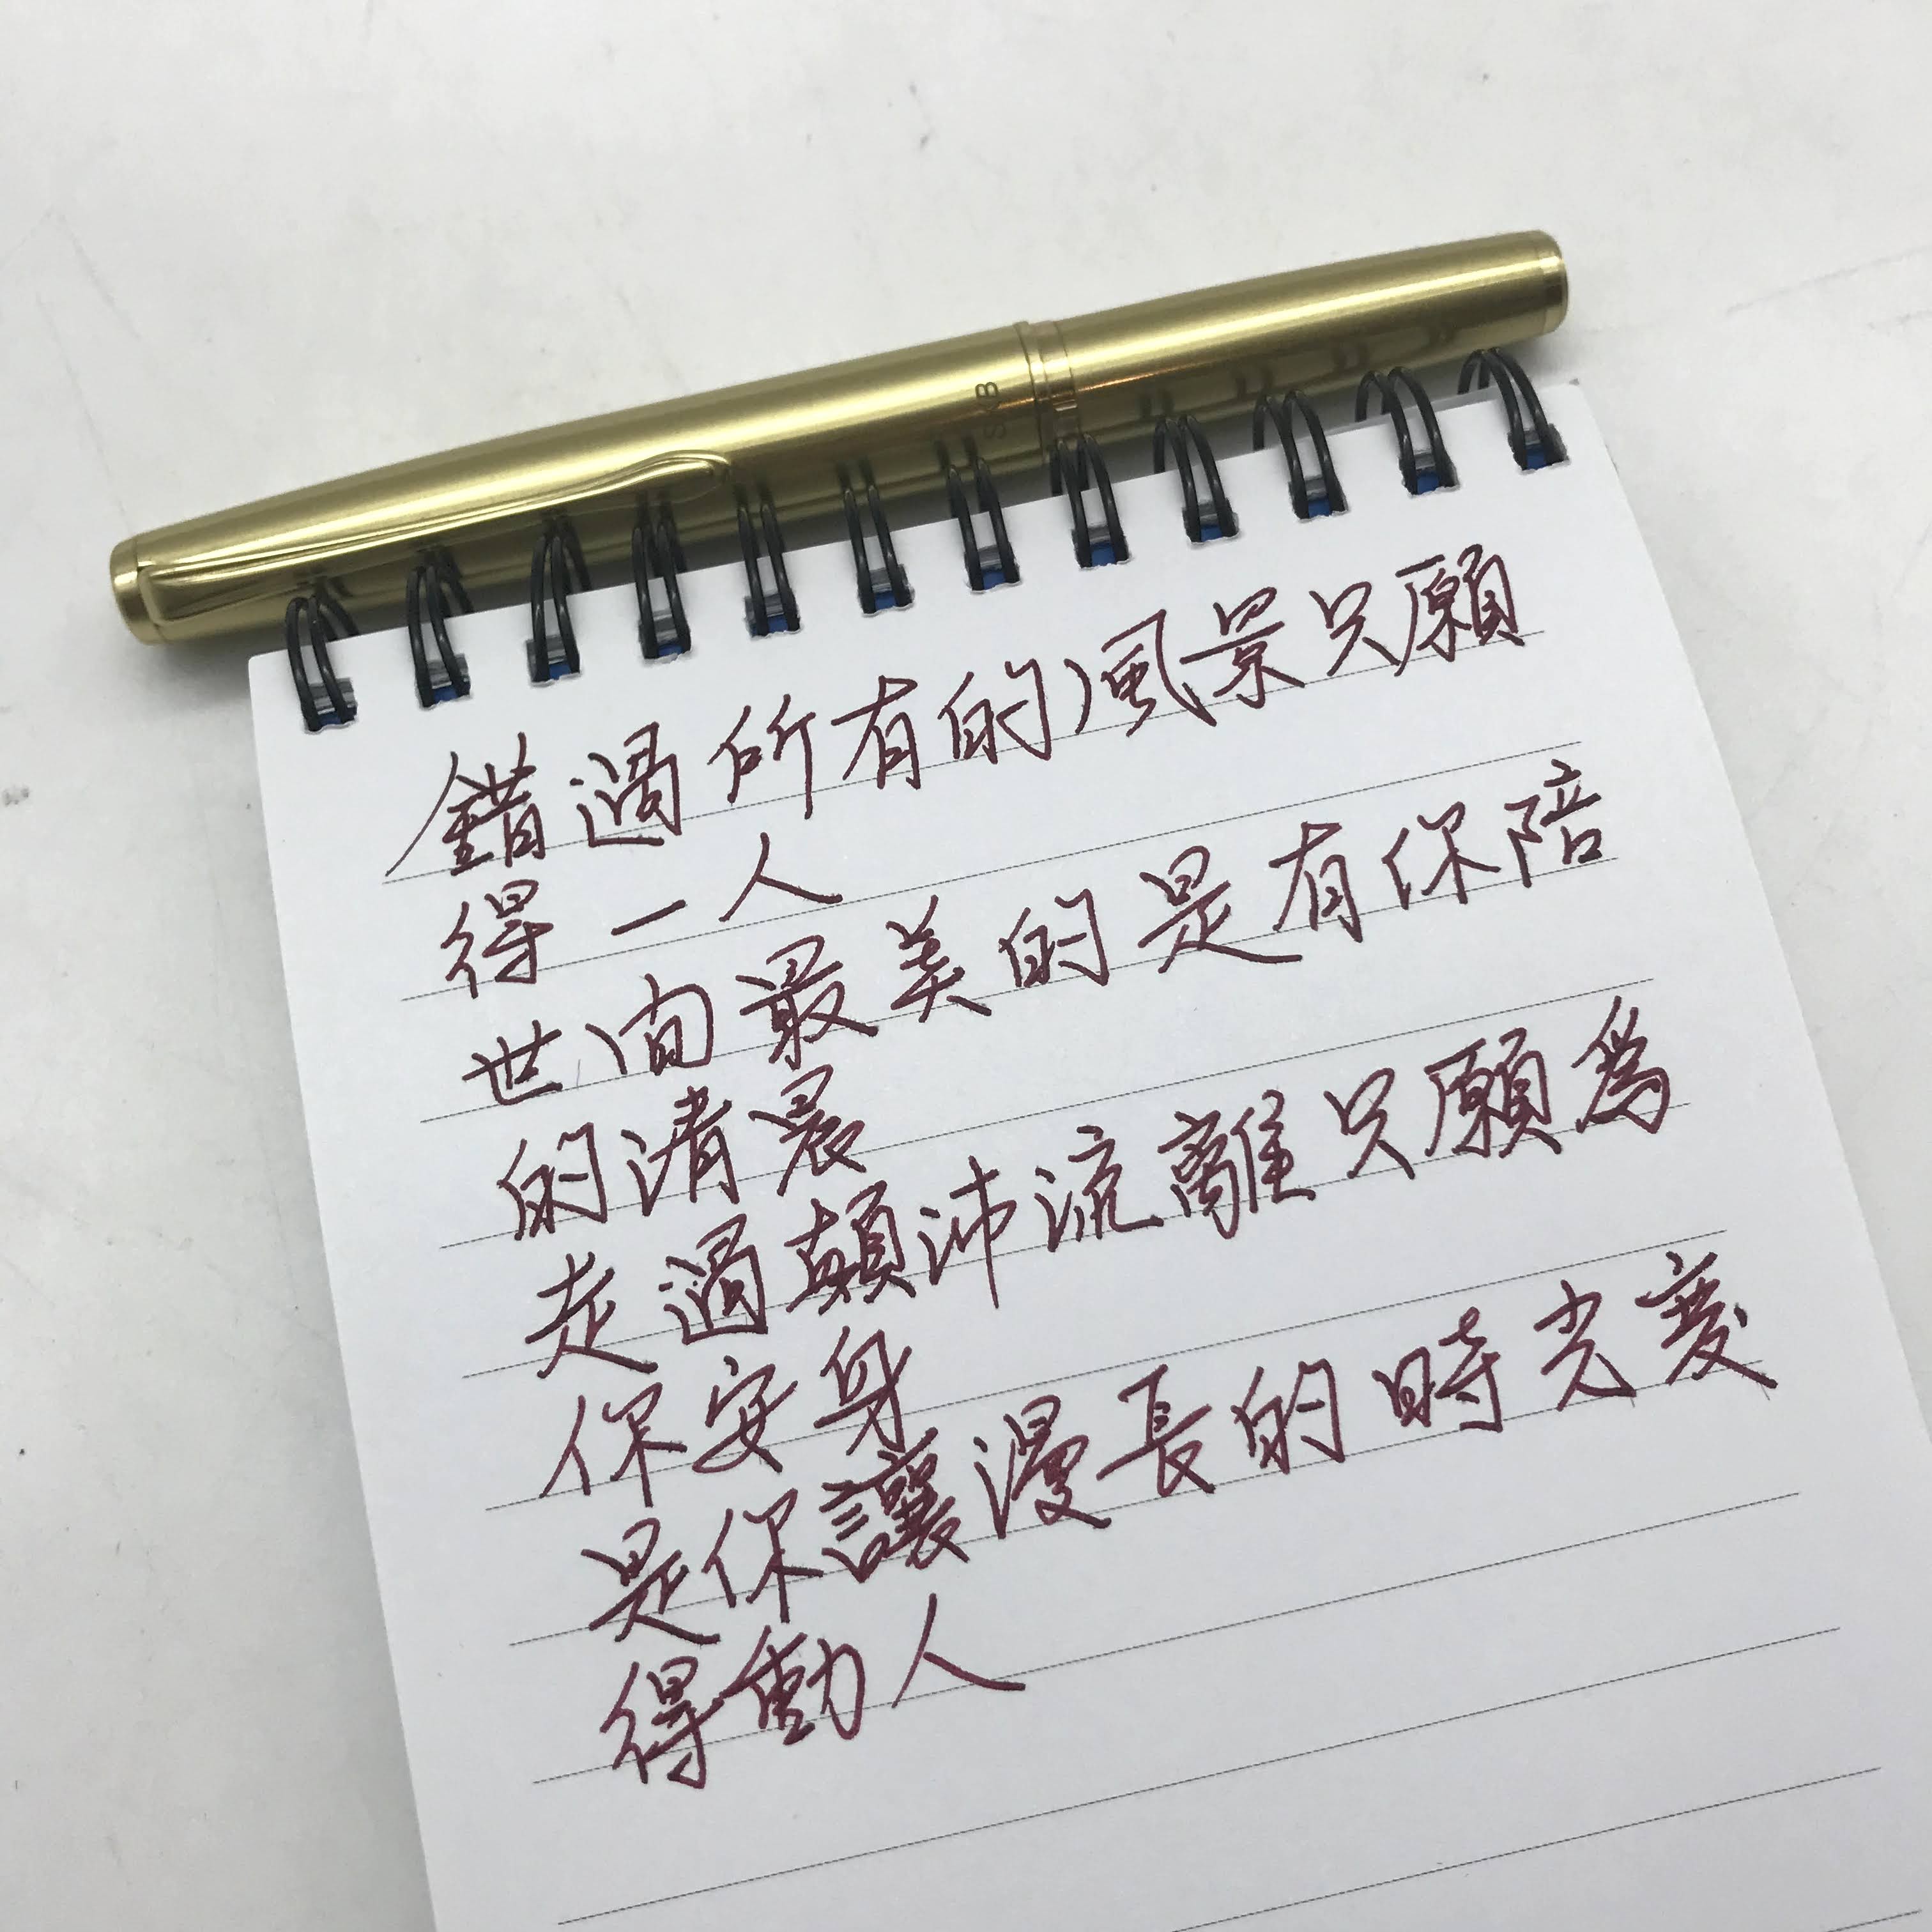 SKB
錯過所有的風景只願
得一人
世間最美的是有你陪
的清晨
走過顛沛流離只願為
你安身
是你讓漫長的時光變
得動人